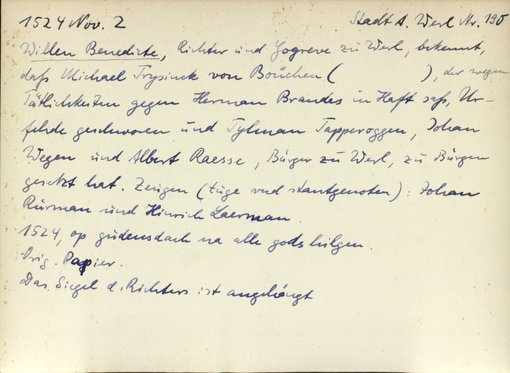 1524 Nov. 2 Stadt A. Werl Nr. 190
Willen Benedicte, Richter und Gogreve zu Werl, bekennt,
daß Michael Trysinck von Boüchen ( ), der wegen
Tätlichkeiten gegen Herman Brandes in Haft saß, Ur-
fehde geschworen und Tylman Tapperoggen, Johan
Wegen und Albert Raesse, Bürger zu Werl, zu Bürgen
gesetzt hat. Zeugen (tüge vnd stantgenoten): Johan
Rürman und Hinrich Laerman.
1524, op gudensdach na alle gods hilgen.
Orig. Papier.
Das Siegel d. Richters ist angehängt